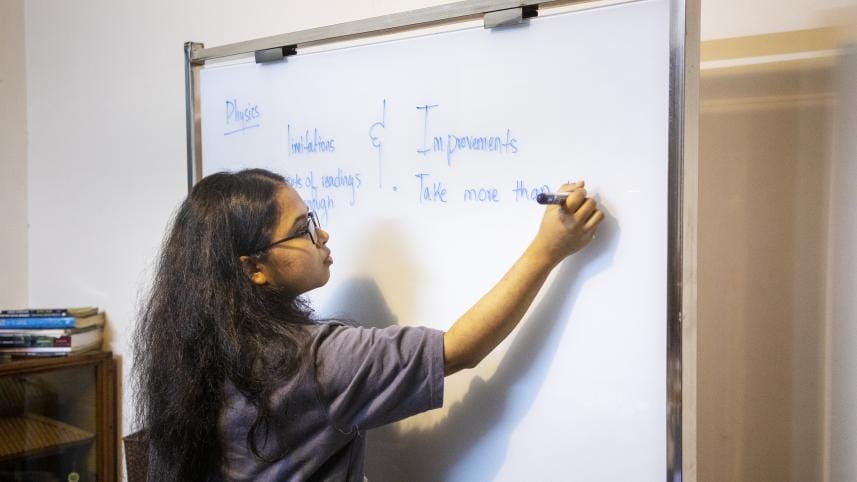 Physics
limitations & Improvements
of readings • Take more than